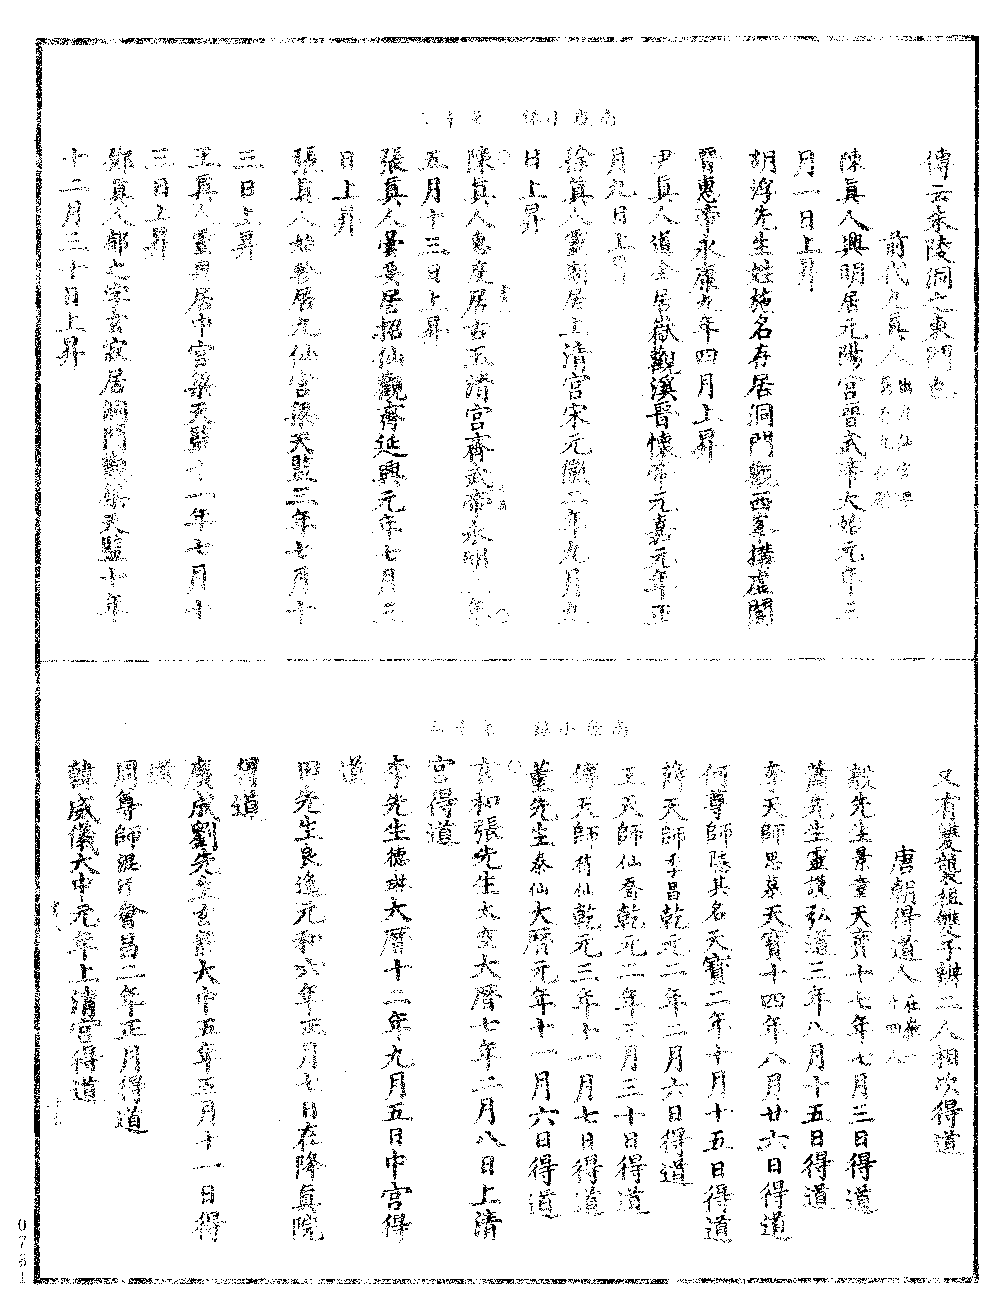 傳云朱陵洞之東門也
前代九真人
陳真人興明居元陽宮晉武帝太始元年三
月一日上昇
胡浮先生姓施名存居洞門觀西峯構虛閣
晉惠帝永康九年四月上昇
尹真人道全居嶽觀溪晉懷帝元嘉元年正
月九日上昇
徐真人靈期居上清宮宋元徽二年九月九
日上昇
陳真人惠度居古玉清宮齊武帝永明 年
五月十三日上昇
張真人曇要居招仙觀齊延興元年七月三
日上昇
張真人始珍居九仙宮梁天監三年七月十
三日上昇
王真人靈輿居中宮梁天監十一年七月十
三日上昇
鄧真人郁之字玄寂居洞門觀梁天監十年
十二月三十日上昇
又有雙襲祖雙子辨二人相次得道
唐朝得道人在嶽十四人
殷先生景童天寶十七年七月三日得道
蕭先生靈護弘道三年八月十五日得道
李天師思慕天寶十四年八月廿六日得道
何尊師隱其名天寶二年十月十五日得道
薛天師季昌乾元二年二月六日得道
王天師仙喬乾元二年三月三十日得道
傅天師符仙乾元三年十一月七日得道
董先生泰仙大曆元年十一月六日得道
玄和張先生太空大曆七年二月八日上清
宮得道
李先生德琳大曆十二年九月五日中宮得
道
田先生良逸元和六年正月七日在降真院
得道
廣成劉先生玄靜大中五年三月十一日得
道
周尊師混 會昌二年正月得道
韓威儀大中元年上清宮得道